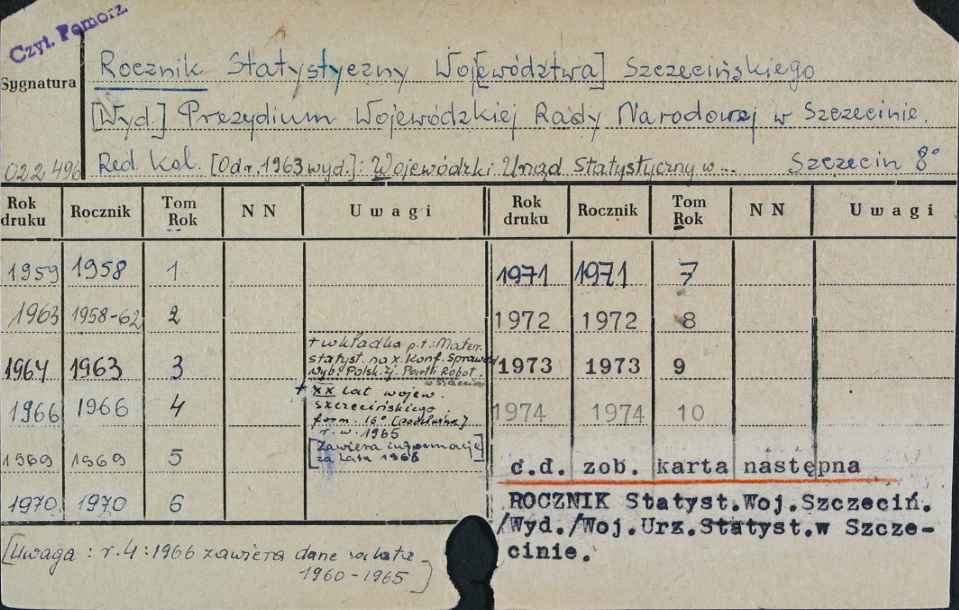 Czyt. Pomorz.
Rocznik Statystyczny Woj[ewództwa] Szczecińskiego
Sygnatura
[Wyd.] Prezydium Wojewódzkiej Rady Narodowej w Szczecinie.
022496 Red. Kol. [Od r. 1963 wyd.]: Wojewódzki Urząd Statystyczny w... Szczecin 8°
Rok druku Rocznik Tom Rok NN Uwagi Rok druku Rocznik Tom Rok NN Uwagi
1959 1958 1 1971 1971 7
1963 1958-62 2 1972 1972 8
1964 1963 3 1973 1973 9
+ wkładka p.t.: Mater.
statyst. na X. Konf. Sprawozd.
wyb. Polsk. Zj. Partii Robot.
w Szczecinie
1966 1966 4 1974 1974 10
+ XX lat wojew.
szczecińskiego
form. 16°
r. w. 1965
1969 1969 5
[Zawiera informacje
za lata 1966
1970 1970 6
c.d. zob. karta następna
ROCZNIK Statyst.Woj.Szczeciń.
/Wyd./Woj.Urz.Statyst.w Szcze-
cinie.
[Uwaga : r. 4 : 1966 zawiera dane za lata
1960-1965]